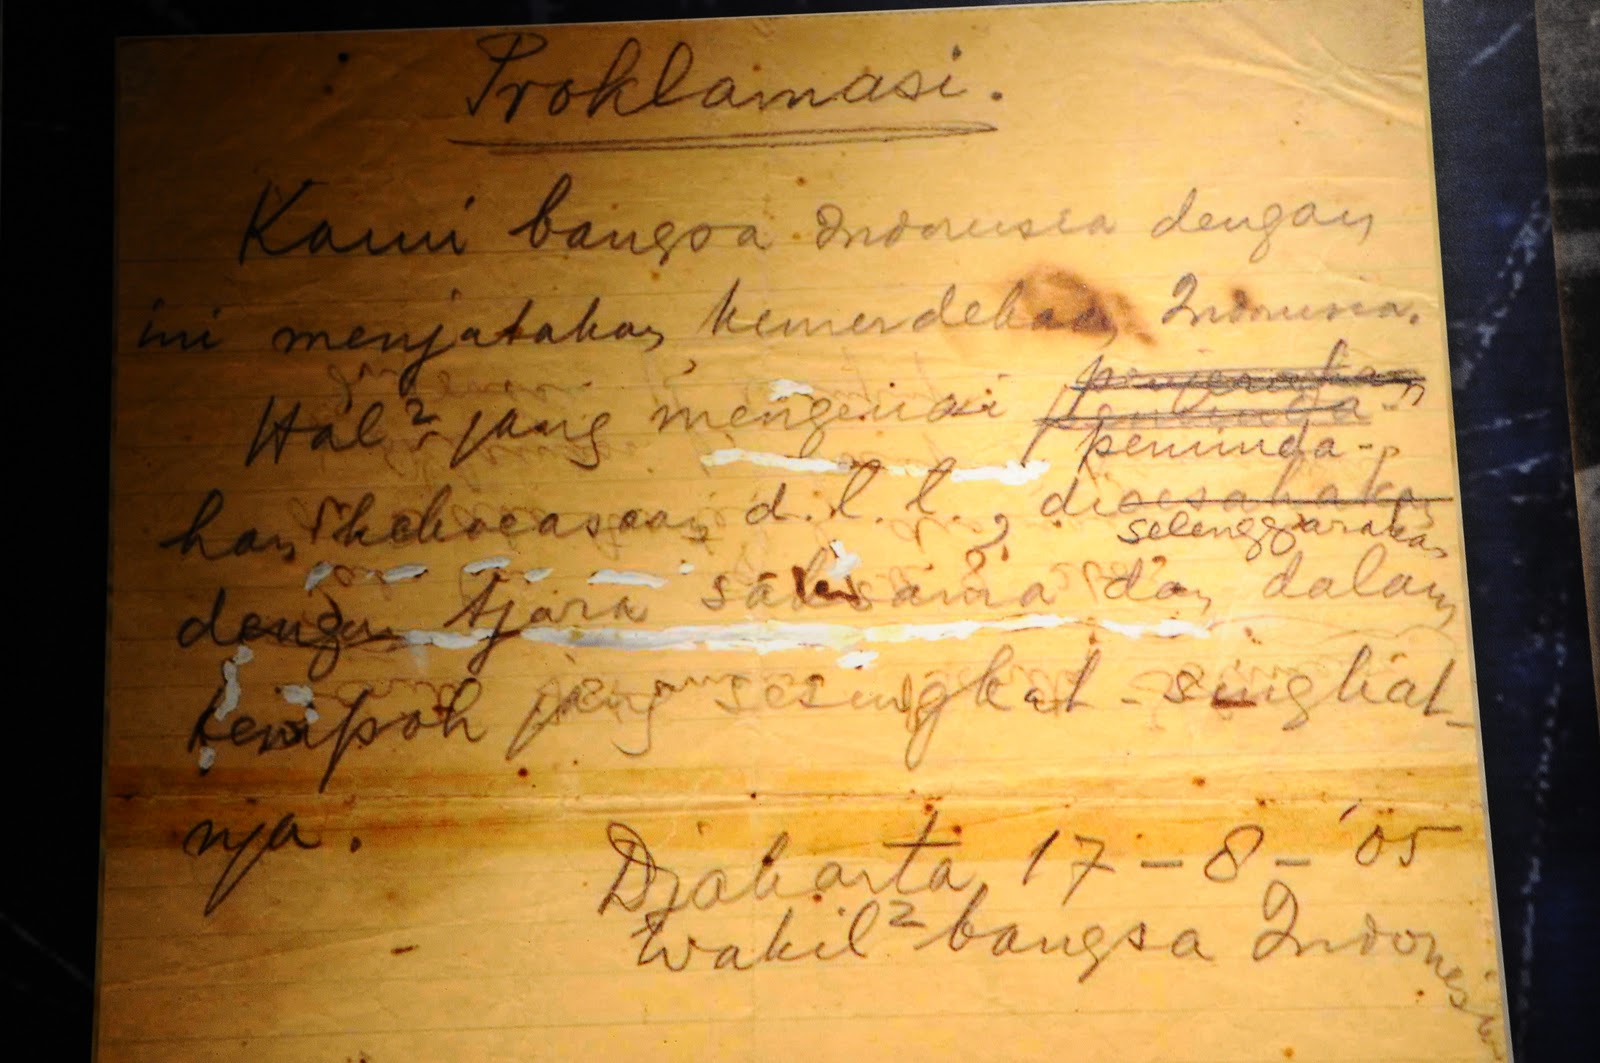 Proklamasi.
Kami bangsa Indonesia dengan
ini menjatakan kemerdekaan Indonesia.
penjerahan
Hal² jang mengenai peminda-
peminda-
han kekoeasaan d.l.l., dioesahakan
selenggarakan
dengan tjara saksama dan dalam
tempoh jang sesingkat-singkat-
nja.
Djakarta 17-8-'05
Wakil² bangsa Indonesia